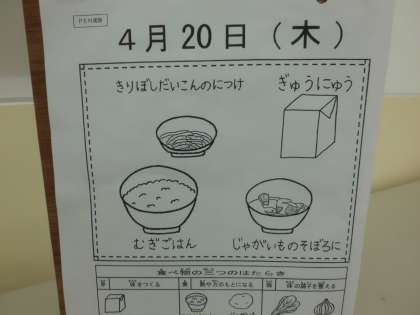 4月20日（木）
きりぼしだいこんのにつけ
ぎゅうにゅう
むぎごはん
じゃがいものそぼろに
食べ物の三つのはたらき
体をつくる
熱や力のもとになる
体の調子を整える